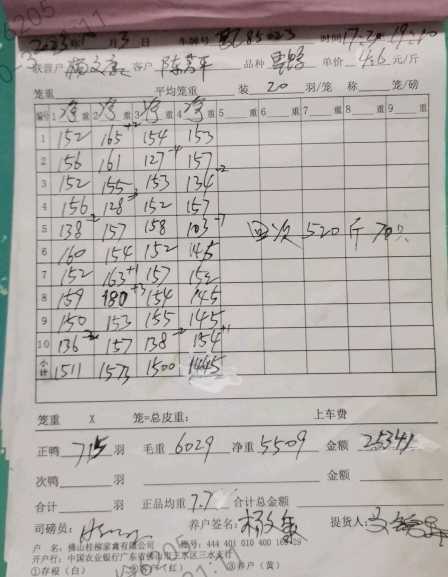 2023年10月3日 车牌号 时间17:20-19:10
客户 陈芳平 品种 单价 4.6 元/斤
笼重 平均笼重 装 20 羽/笼 称 笼/磅
编号 1净重 2净重 3净重 4净重 5 重 6 重 7 重 8 重 9 重
1 152 165+2 154 153
2 156 161 127-4 157
3 152 155 153 134-2
4 156 128 152 157
5 138-2 157 158 103-7 回次 520斤 70只
6 160 154 152 145
7 152 163+1 157 152
8 159 180+3 154 145
9 150 153 155 145
10 136-2 157 138-2 154+1
小计 1511 1573 1500 1445
笼重 X 笼=总皮重: 上车费
正鸭 715 羽 毛重 6029 净重 5509 金额 25341
次鸭 羽 金额
合计 羽 正品均重 7.7 合计总金额
司磅员: 养户签名: 提货人:
户 名:佛山桂柳家禽有限公司 账号:444 401 010 400
开户行:中国农业银行广东省佛山市三水区三水支行
①存根(白) (红) ③养户(黄)